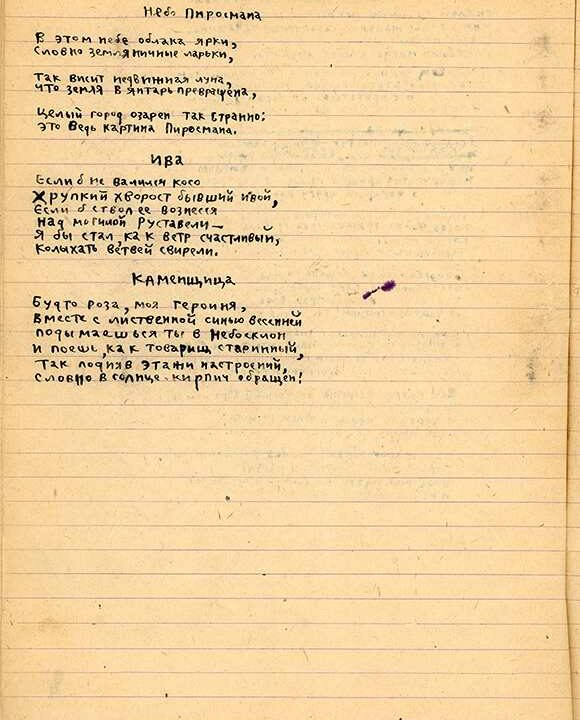 Небо Пиросмана
В этом небе облака ярки,
Словно земляничные ларьки,
Так висит недвижная луна,
Что земля в янтарь превращена,
Целый город озарен так странно:
Это ведь картина Пиросмана.
Ива
Если б не валился косо
Хрупкий хворост бывший ивой,
Если б ствол ее вознесся
Над могилой Руставели —
Я бы стал, как ветр счастливый,
Колыхать ветвей свирели.
Каменщица
Будто роза, моя героиня,
Вместе с лиственной синью весенней
Подымаешься ты в небосклон
И поешь, как товарищ старинный,
Так подняв этажи настроений,
Словно в солнце кирпич обращен!